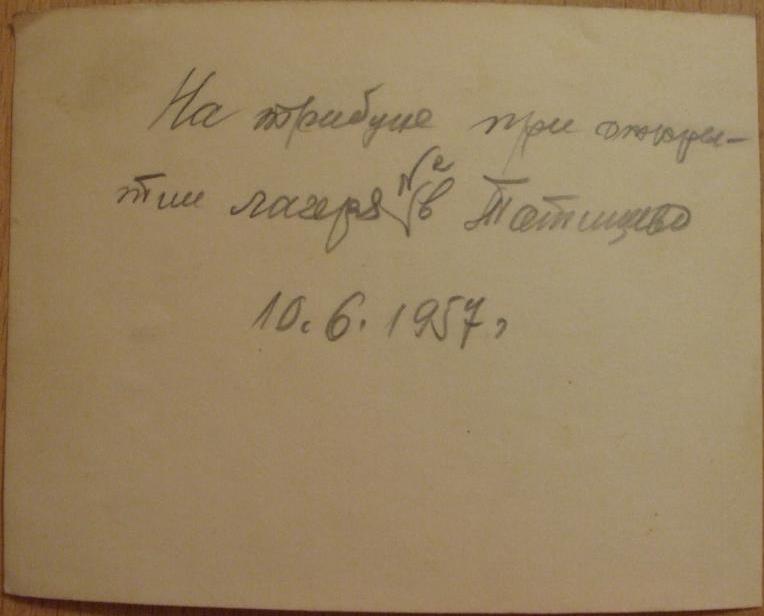 На трибуне при откры-
тии лагеря №2 в Татищево
10.6.1957г